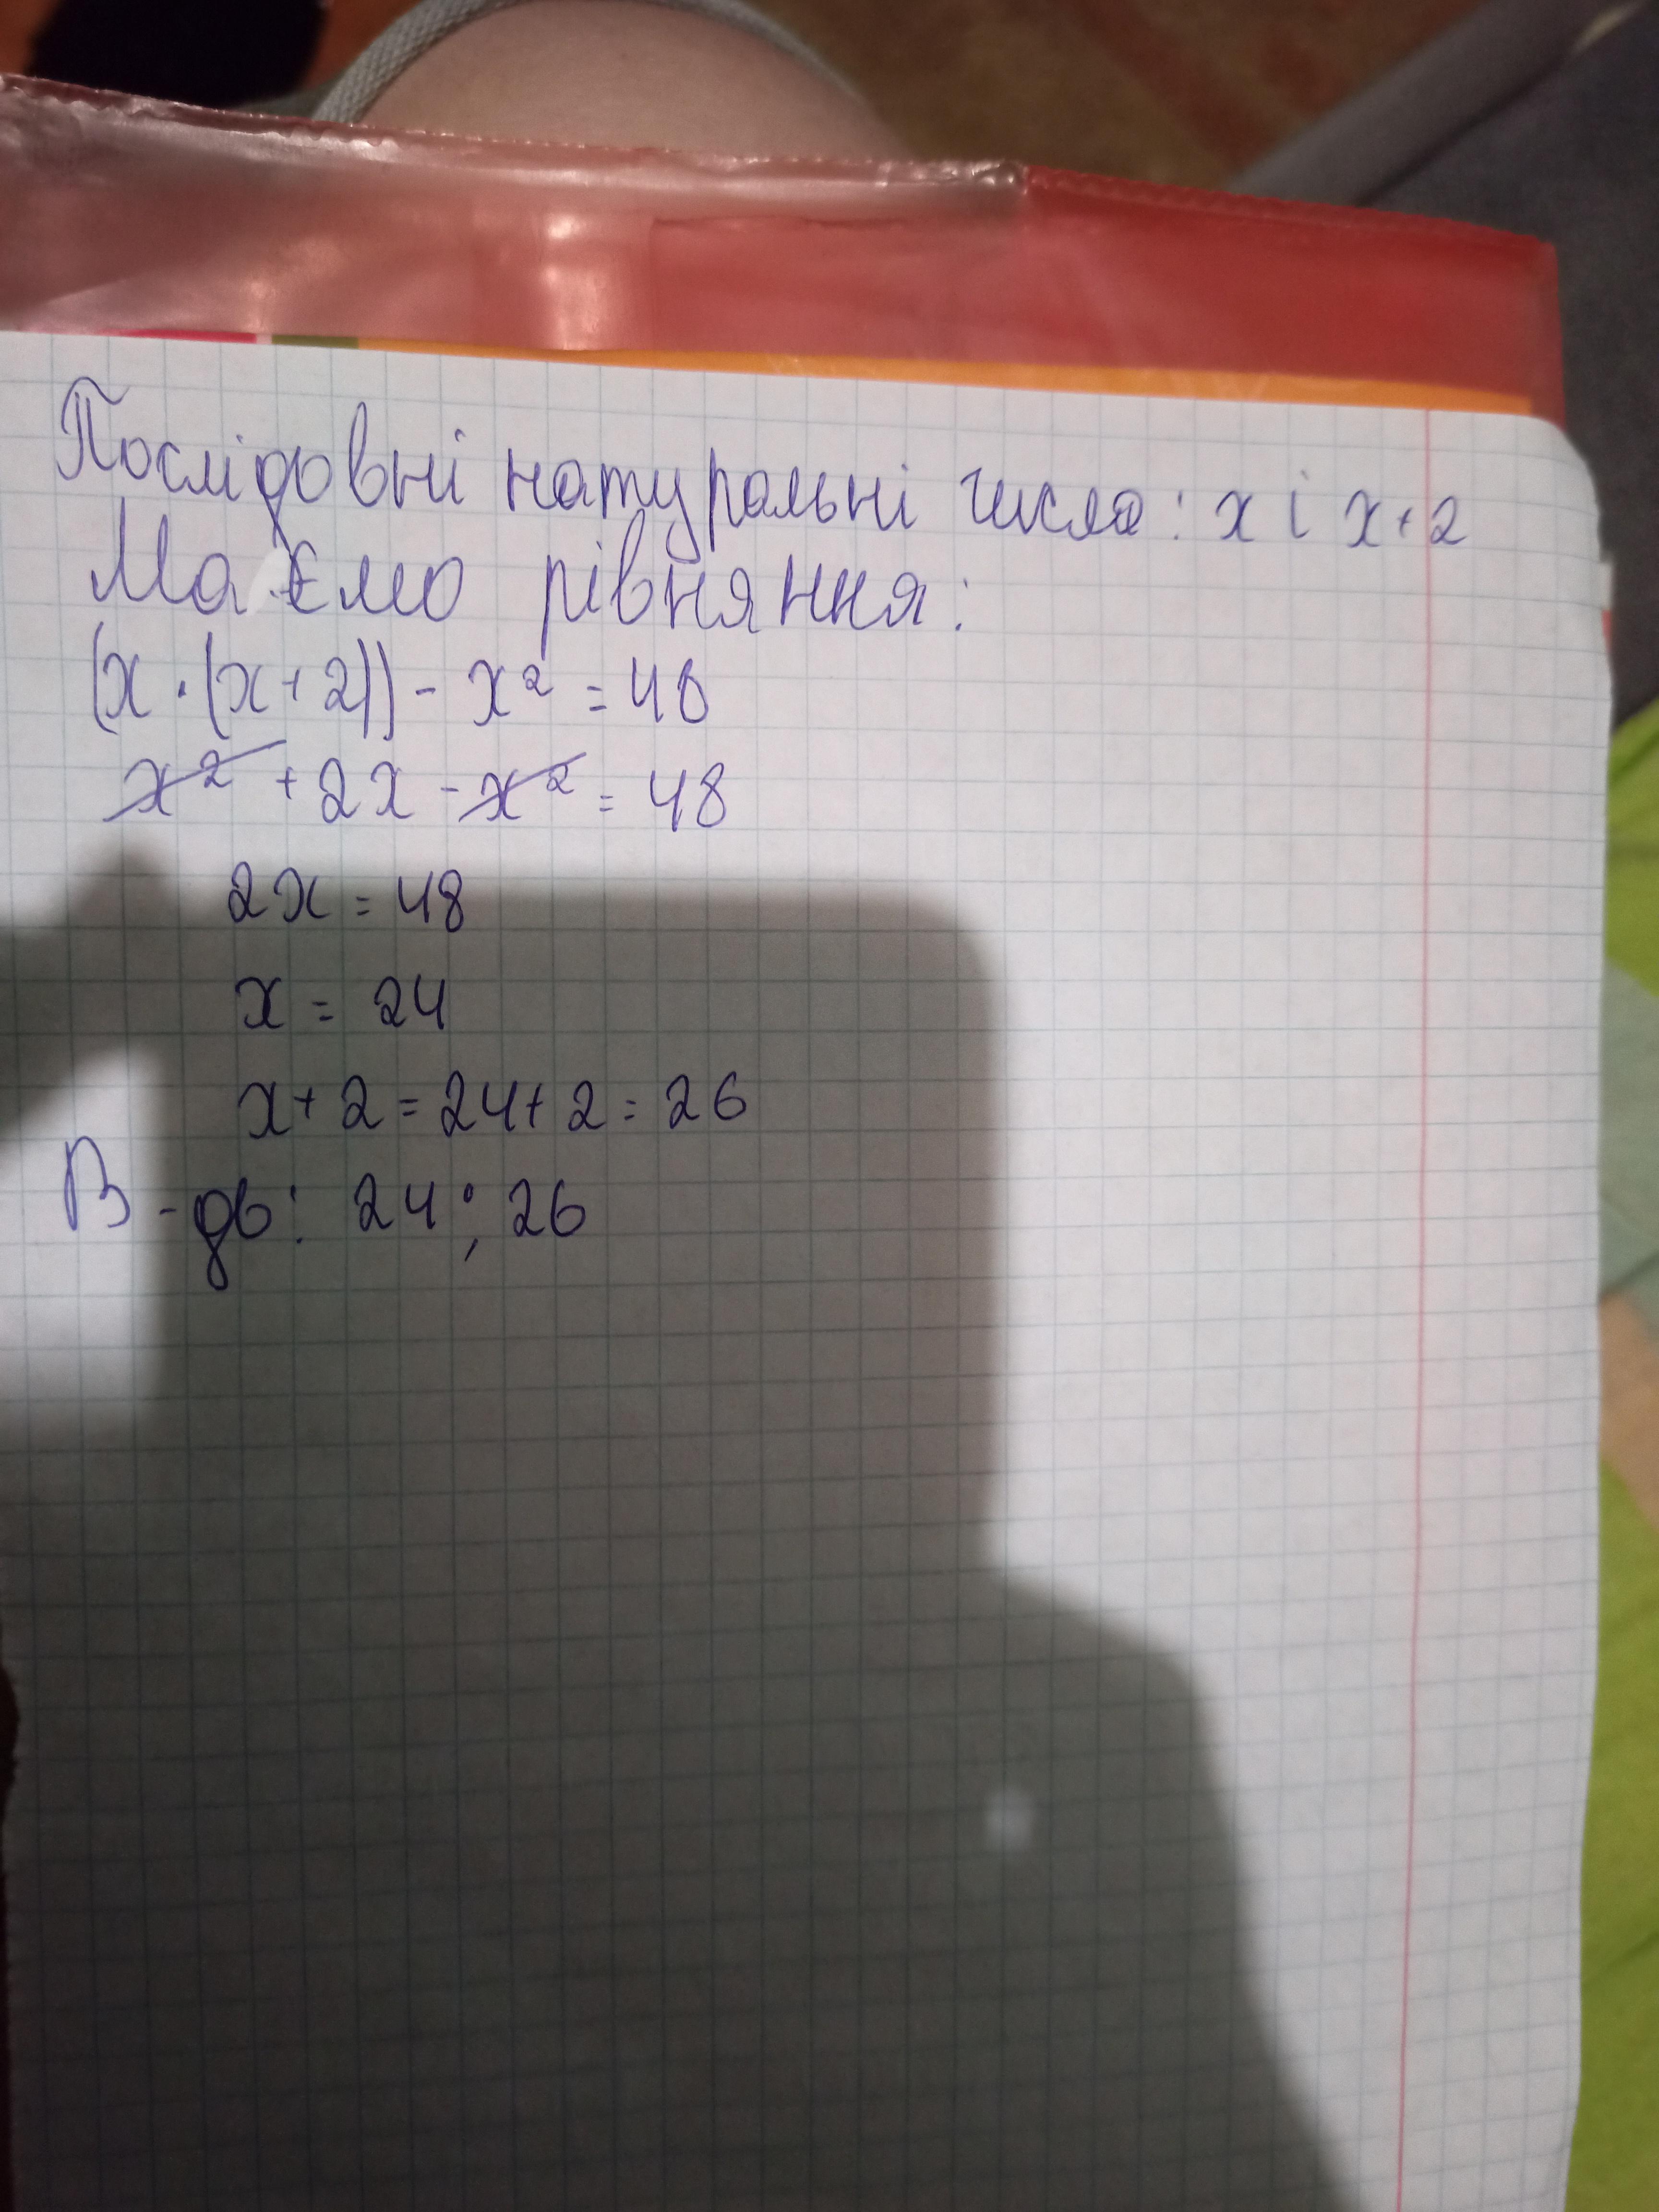 Послідовні натуральні числа: x і x+2
Маємо рівняння:
(x·(x+2))-x²=48
x²+2x-x²=48
2x=48
x=24
x+2=24+2=26
В-дь: 24; 26